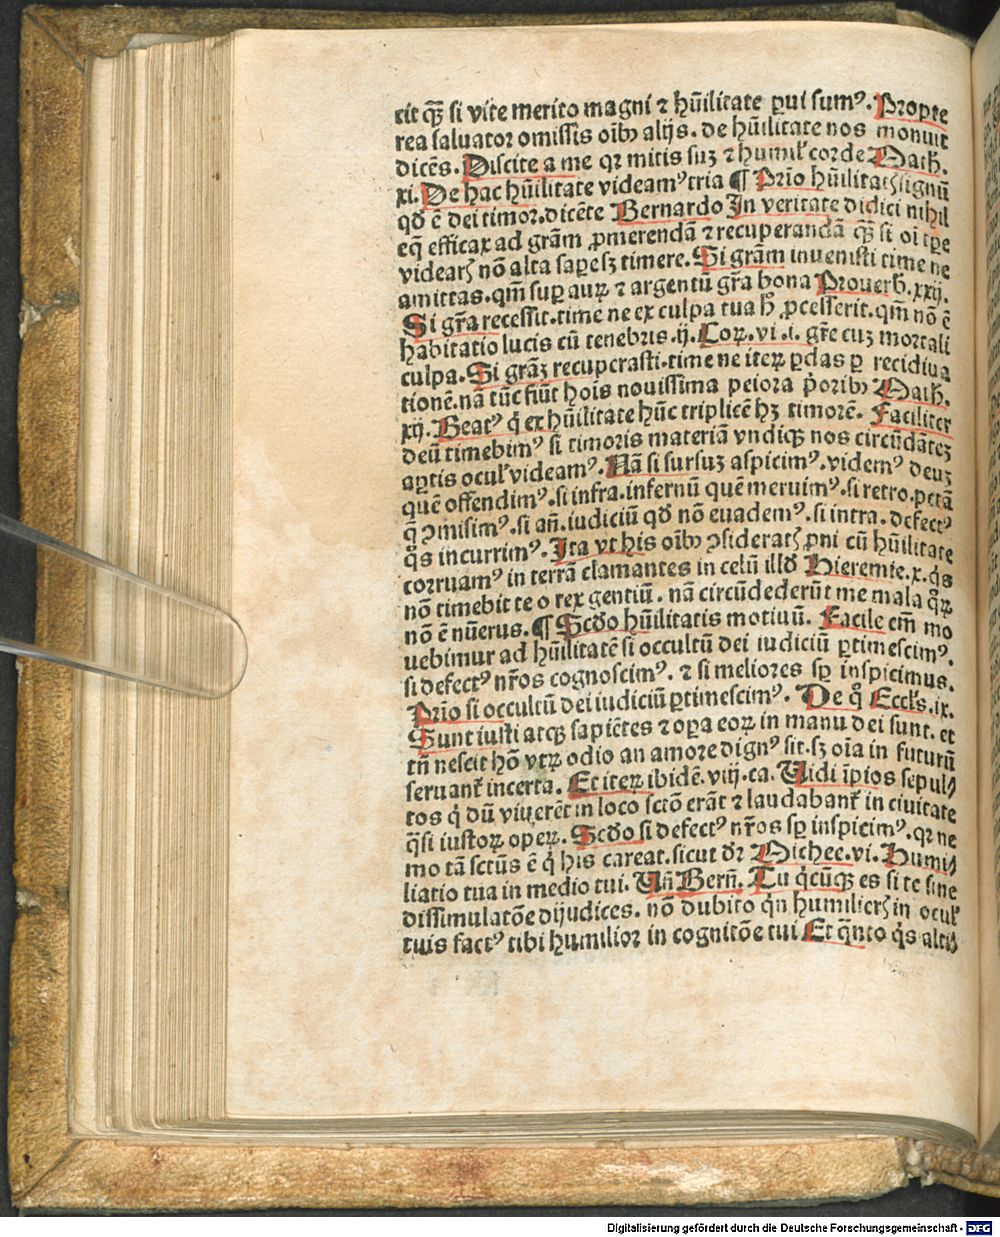 cit qȝ̄ si vite merito magni ⁊ hūilitate ꝑui sumꝰ. Propte
rea saluator omissis oībꝰ alijs. de hūilitate nos monuit
dicēs. Discite a me qꝛ mitis suꝫ ⁊ humiľ corde Math.
xi. De hac hūilitate videamꝰ tria ¶ Prīo hūilitatꝭ signū
qđ ē dei timoꝛ. dicēte Bernardo In veritate didici nihil
eqꝫ efficax ad grām ꝓmerendā ⁊ recuperandā qȝ̄ si oī tꝑe
videarꝭ nō alta saꝑe sꝫ timere. Si grām inuenisti time ne
amittas. qm̄ suꝑ auꝝ ⁊ argentū grā bona Prouerb. xxij.
Si grā recessit. time ne ex culpa tua h̄ ꝓcesserit. qm̄ nō ē
habitatio lucis cū tenebris. ij. Coꝝ. vi .i. gr̄e cuꝫ moꝛtali
culpa. Si grāꝫ recuperasti. time ne iteꝝ ꝑdas ꝑ recidiua
tionē. nā tūc fiūt hoīs nouissima peioꝛa p̄oꝛibꝰ Math.
xij. Beatꝰ q̇ ex hūilitate hūc triplicē hꝫ timoꝛē. Faciliter
deū timebimꝰ si timoꝛis materiā vndiqꝫ nos circūdāteꝫ
aꝑtis ocul̓ videamꝰ. Nā si sursuꝫ aspicimꝰ. videmꝰ deuꝫ
quē offendimꝰ. si infra. infernū quē meruimꝰ. si retro. pctā
q̄ ꝯmisimꝰ. si an̄. iudiciū qđ nō euademꝰ. si intra. defectꝰ
q̊s incurrimꝰ. Ita vt his oībꝰ ꝯsideratꝭ ꝓni cū hūilitate
coꝛruamꝰ in terrā clamantes in celū illđ Hieremie. x. q̇s
nō timebit te o rex gentiū. nā circūdederūt me mala q̊ꝝ
nō ē nūerus. ¶ Scđo hūilitatis motiuū. Facile em̄ mo
uebimur ad hūilitatē si occultū dei iudiciū ꝑtimescimꝰ.
si defectꝰ nr̄os cognoscimꝰ. ⁊ si melioꝛes sꝑ inspicimus.
Prīo si occultū dei iudiciū ꝑtimescimꝰ. De q̊ Eccl̓s. ix.
Sunt iusti atqꝫ sapiētes ⁊ oꝑa eoꝝ in manu dei sunt. et
tn̄ nescit hō vtꝝ odio an amoꝛe dignꝰ sit. sꝫ oīa in futurū
seruant̄ incerta. Et iteꝝ ibidē. viij. ca. Uidi īpios sepul⸗
tos q̇ dū viuerēt in loco sctō erāt ⁊ laudabant̄ in ciuitate
q̄si iustoꝝ opeꝝ. Scđo si defectꝰ nr̄os sꝑ inspicimꝰ. qꝛ ne
mo tā sctūs ē q̇ his careat. sicut dꝛ Michee. vi. Humi⸗
liatio tua in medio tui. Un̄ Bern̄. Tu q̇cūqꝫ es si te sine
dissimulatōe dijudices. nō dubito q̇n humilierꝭ in ocul̓
tuis factꝰ tibi humilioꝛ in cognitōe tui Et q̄nto q̇s alti⸗
Digitalisierung gefördert durch die Deutsche Forschungsgemeinschaft - DFG